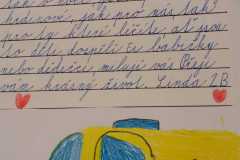 hrdinové, jak pro nás, tak
pro ty, které léčíte, ať jsou
to děti, dospělí či babičky
nebo dědečci, miluji vás. Přeji
vám krásný život. Linda 7.B